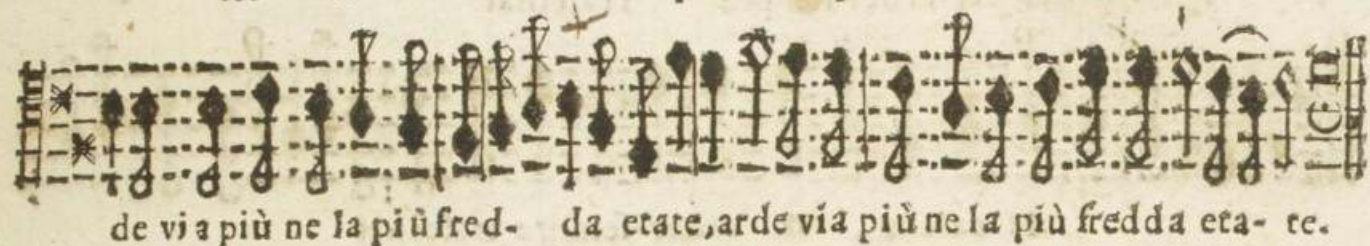 de via più ne la più fred- da etate, arde via più ne la più fredda eta- te.